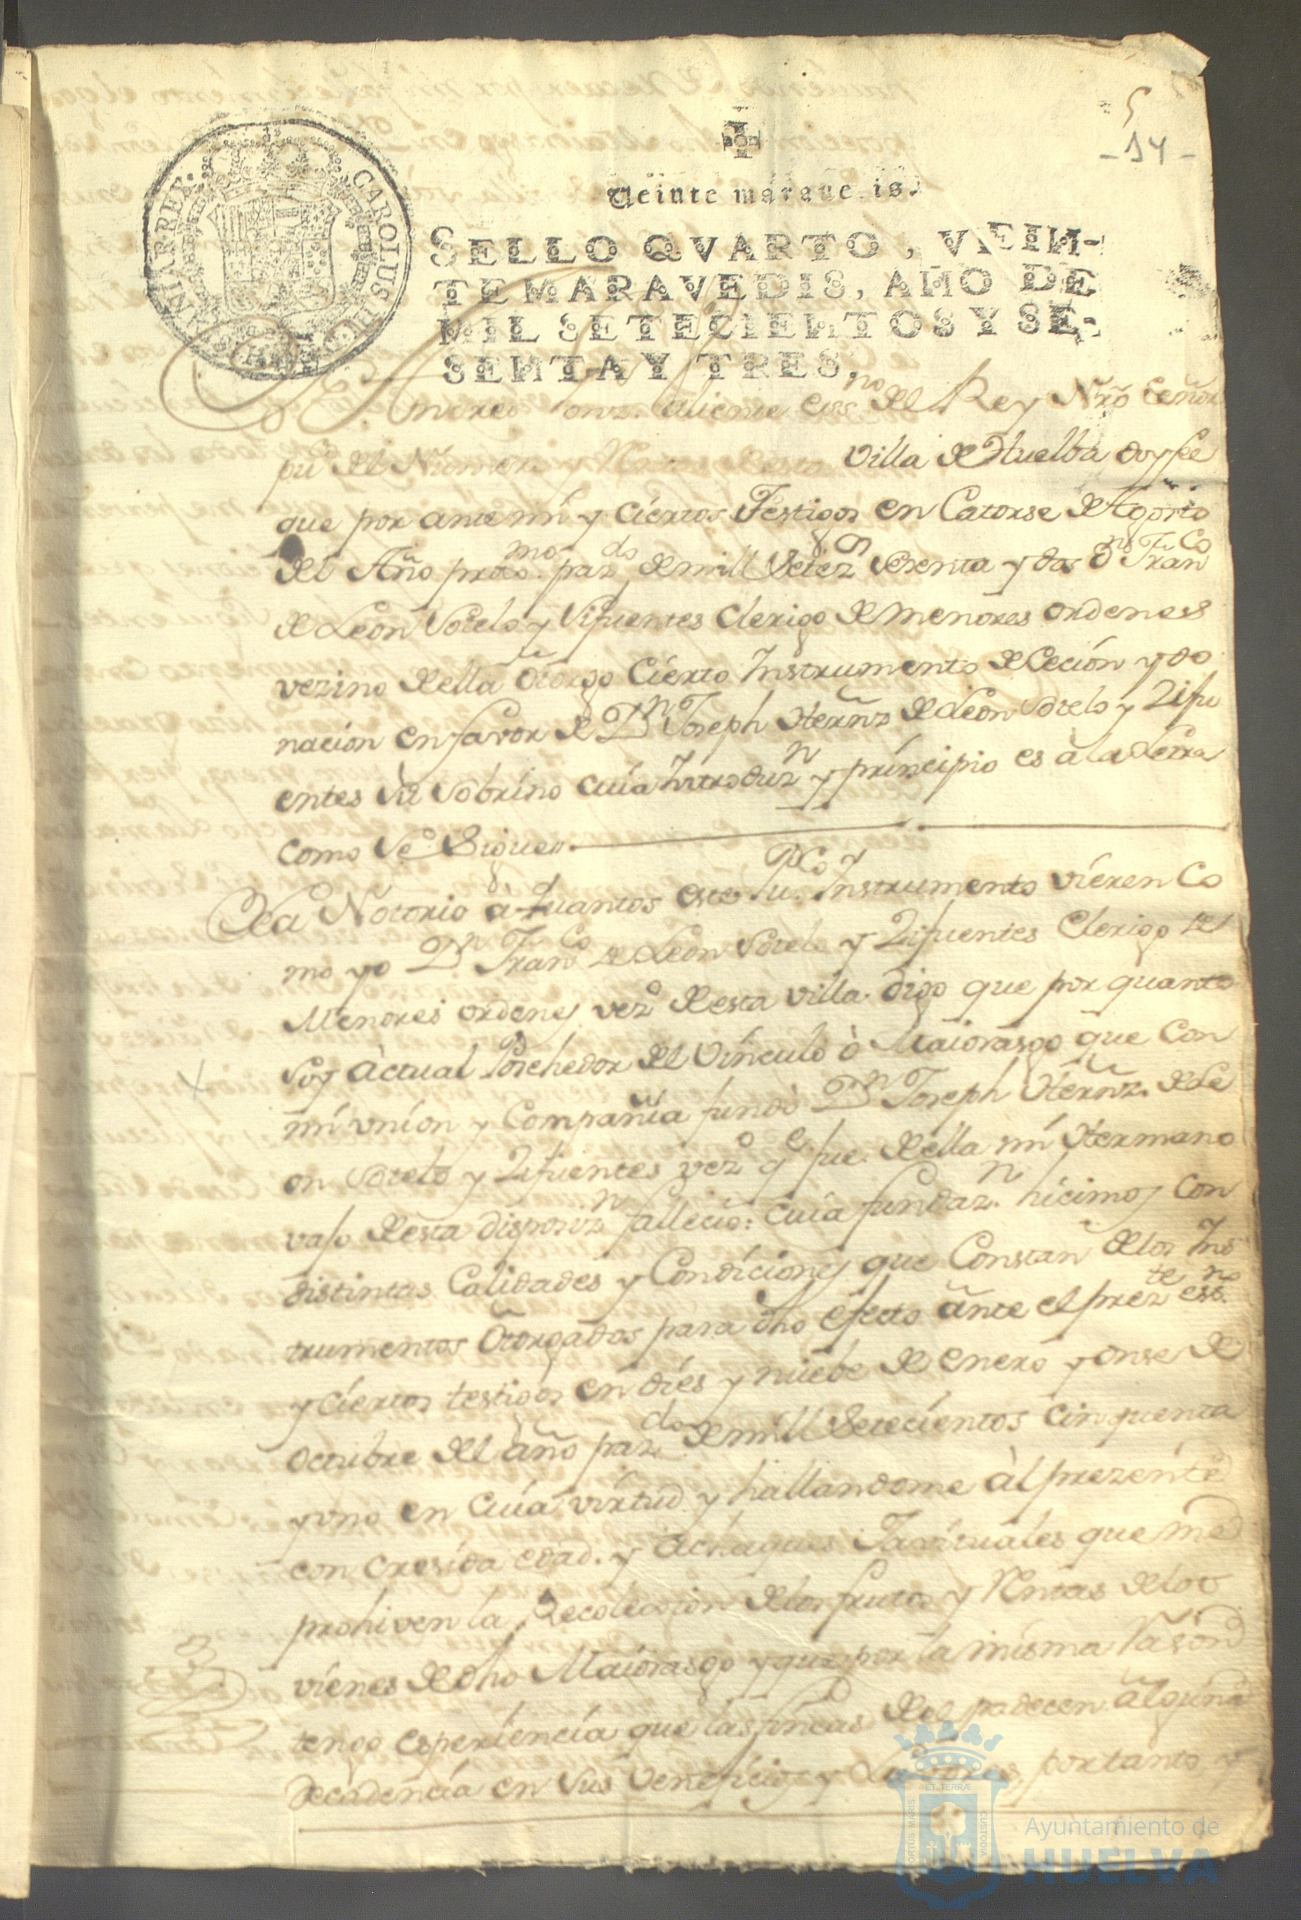 5
- 14 -
CAROLUS III
HISPANIAR REX
Veinte maravedis.
SELLO QVARTO, VEIN-
TE MARAVEDIS, AÑO DE
MIL SETECIENTOS Y SE-
SENTA Y TRES.
Andres Gonz. Essno del Rey Nrõ Señor
pu del Número Villa de Huelba doy fee
que por ante mi y Ciertos Testigos en Catorse de Agosto
del Año proxmo pazdo de mill Setez Sesenta y dos Dn Franco
de Leon Sotelo y Sifuentes Clerigo de menores ordenes
vezino de ella Otorgo Cierto Instrumento de Ceción y do
nacion en favor de Dn Joseph Herñz de Leon Sotelo y Zifu
entes su Sobrino cuia Introduzn y príncipio es à la Letra
como Se Sigue
Sea Notorio à quantos este puco Instrumento vieren Co
mo yo Dn Franco de Leon Sotelo y Zifuentes Clerigo de
Menores ordenes vezo de esta villa. digo que por quanto
soy àctual Posehedor del Vínculo ò Maiorasgo que con
mi vníon y Compañía fundò Dn Joseph Herñz. de Le
on Sotelo y Zifuentes vezo qe fue de ella mi Hermano
vajo de esta disposizn falleciò: cuia fundazn hicimos con
distintas Calidades y Condíciones que Constan de los Ins
trumentos Otorgados para dho efecto ante el prezte esno.
y Ciertos testigos en díes y nuebe de enero y onse de
octubre del año pazdo de mill Setecientos cinquenta
y uno en cuia virtud y hallandome àl prezente
con cresida edad. y achaques Havituales que me
prohiven la Recoleccion de los frutos y Rentas de los
vienes de dho Maiorasgo y que por la misma Rasòn
tengo esperiencia que las fincas del padecen àlguna
decadencia en sus veneficios y Labores, por tanto
PORTUS MARIS
ET TERRÆ
CUSTODIA
Ayuntamiento de
HUELVA